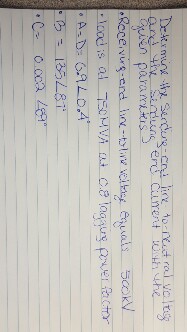 Determine the sending-end line to neutral voltage
and the sending end current with the
given parameters.
• Receiving-end line-to-line voltage equals 500kV
• load is at 750MVA at 0.8 lagging power factor
• A=D= 0.9 ∠0.4°
• B = 135 ∠87°
• C = 0.002 ∠89°